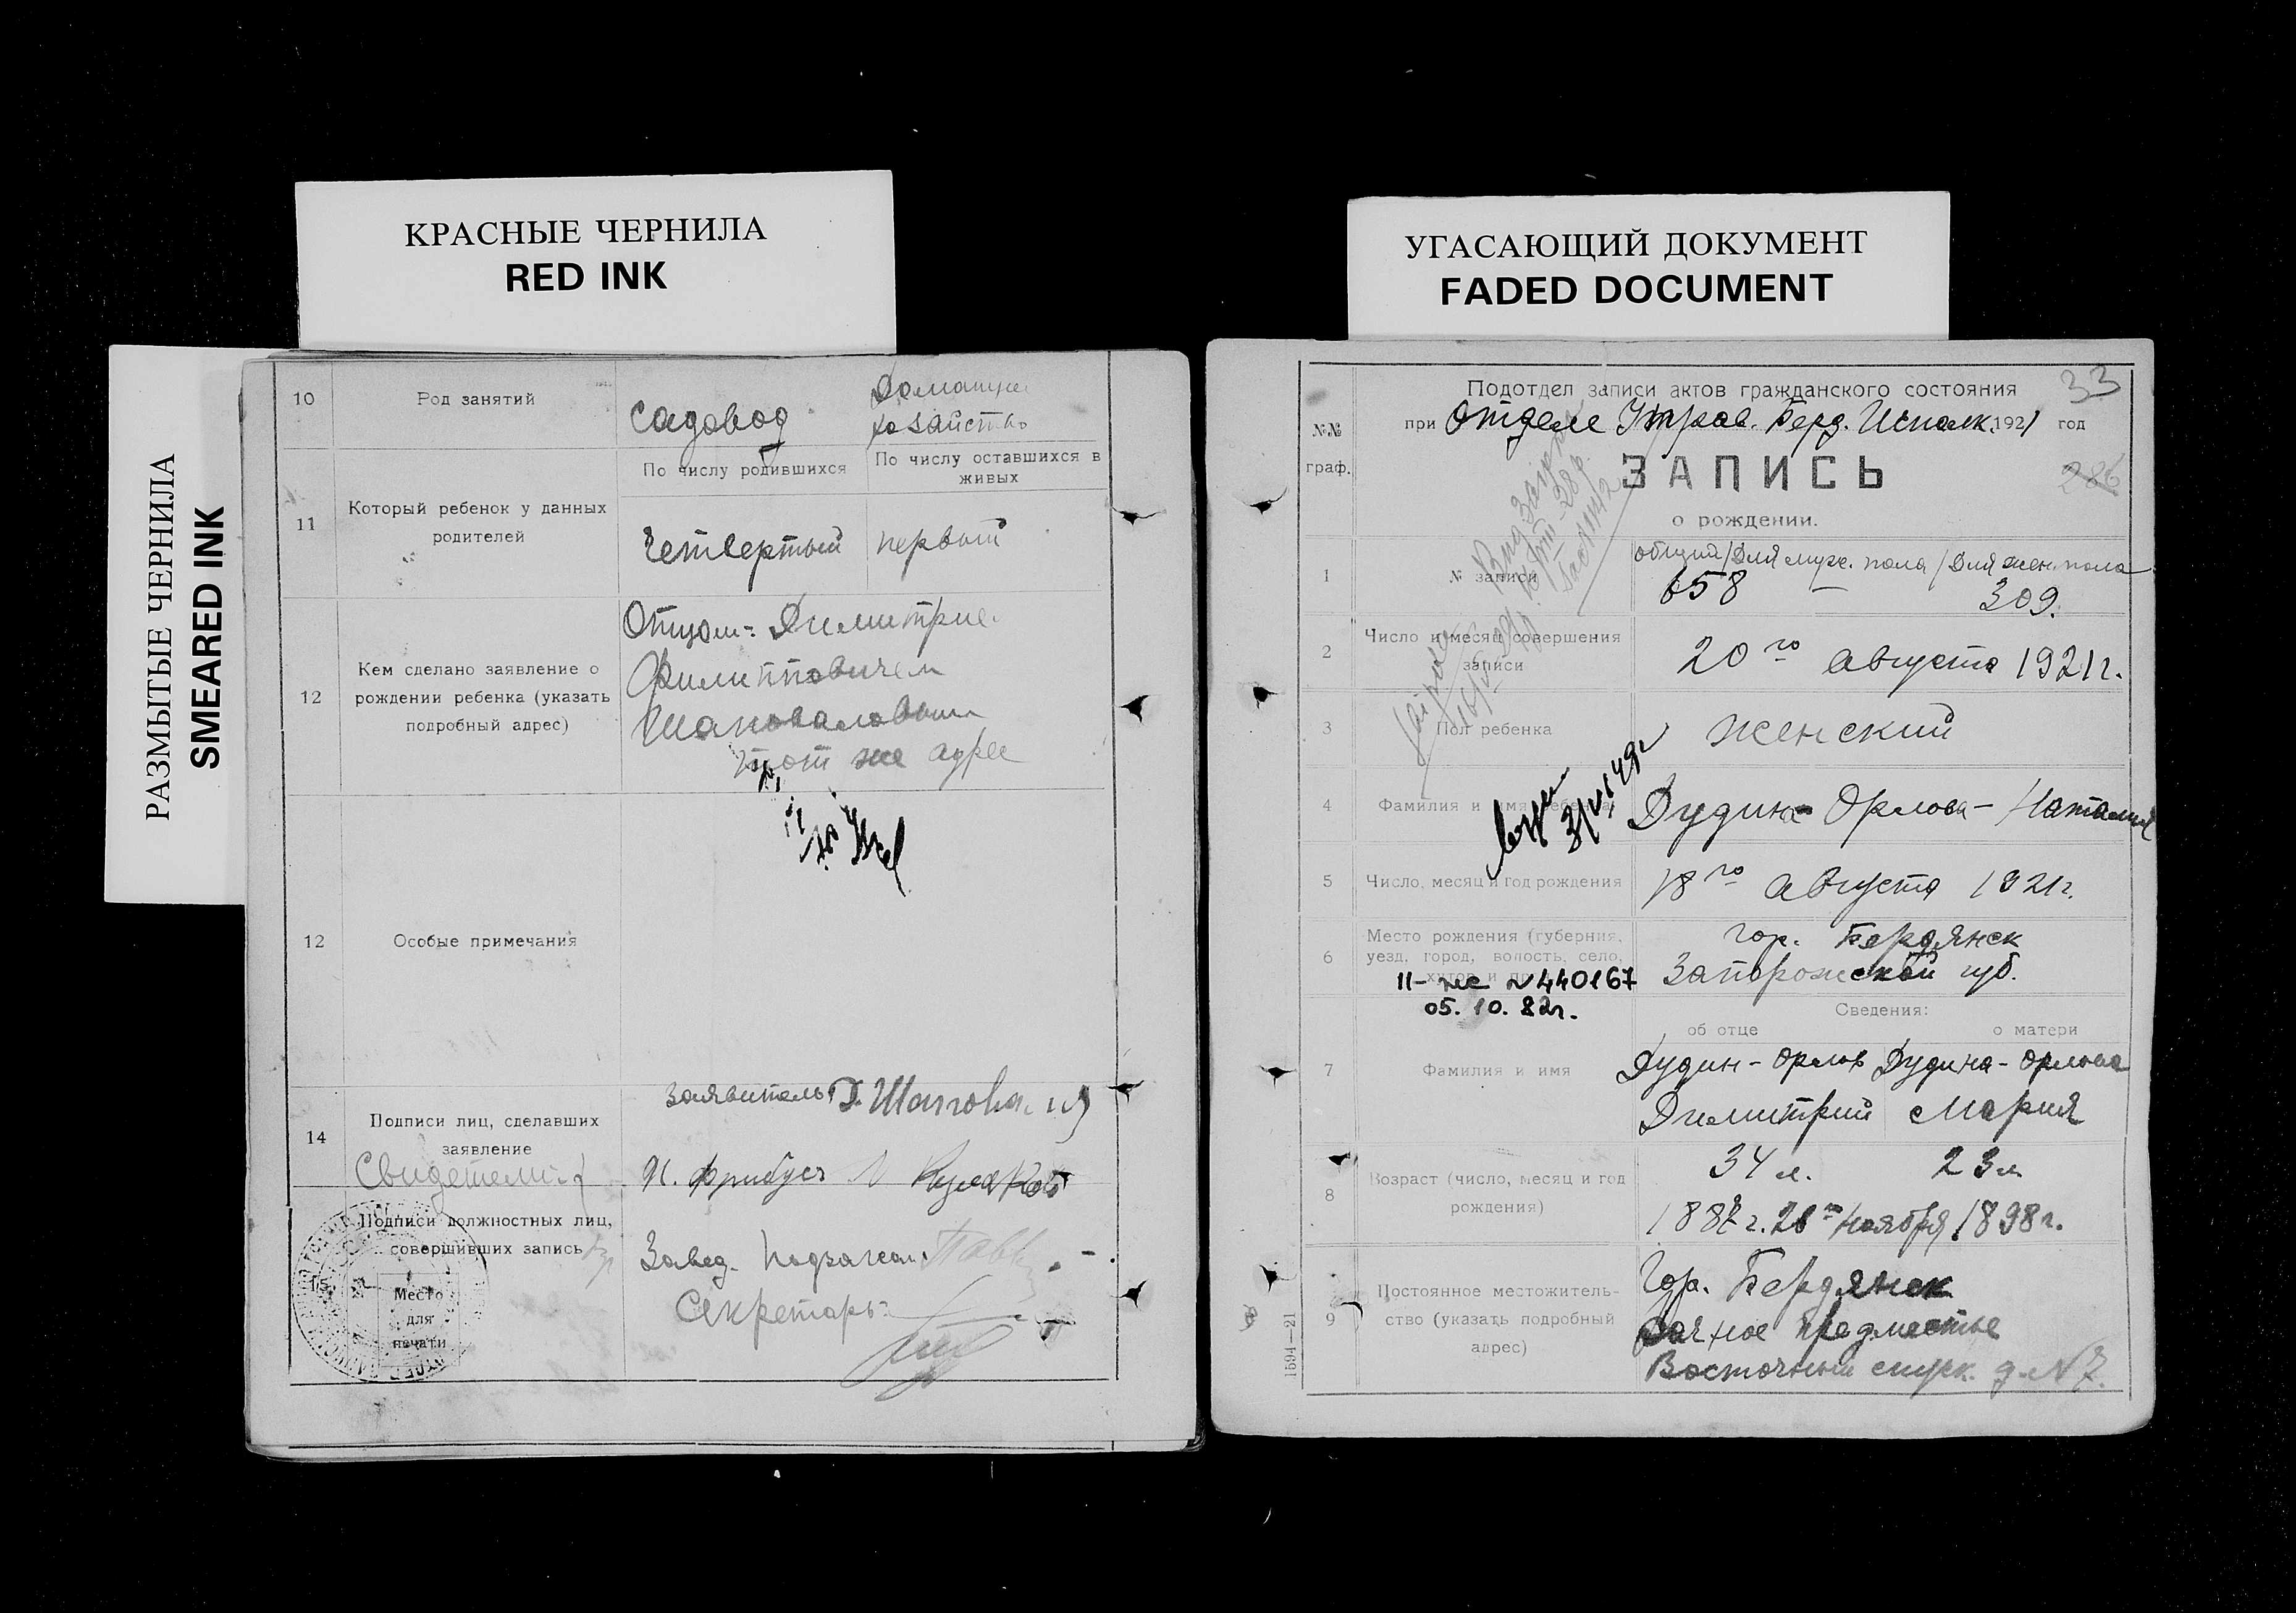 КРАСНЫЕ ЧЕРНИЛА
RED INK
РАЗМЫТЫЕ ЧЕРНИЛА
SMEARED INK
10
Род занятий
садовод
домашнее
хозайство
11
Который ребенок у данных
родителей
По числу родившихся
По числу оставшихся в
живых
четвертый
первый
12
Кем сделано заявление о
рождении ребенка (указать
подробный адрес)
Отцом: Димитрие
Филипповичем
Шаповаловым
тот же адрес
12
Особые примечания
14
Подписи лиц, сделавших
заявление
Свидетели:
заявитель Д. Шаповалов
Подписи должностных лиц,
совершивших запись
Завед.
Секретарь:
Место
для
печати
УГАСАЮЩИЙ ДОКУМЕНТ
FADED DOCUMENT
33
Подотдел записи актов гражданского состояния
при Отделе Управ. Берд. Исполк. 1921 год
№№
граф.
ЗАПИСЬ
286
о рождении.
1
№ записи
общий/Для муж. пола/Для жен. пола
658 — 309.
2
Число и месяц совершения
записи
20го августа 1921г.
3
Пол ребенка
женский
4
Фамилия и имя ребенка
Дудина-Орлова-Наталия
5
Число, месяц и год рождения
18го августа 1921г.
6
Место рождения (губерния,
уезд, город, волость, село,
гор. Бердянск
Запорожской губ.
II-же №440167
05.10.82г.
Сведения:
об отце
о матери
7
Фамилия и имя
Дудин-Орлов
Дудина-Орлова
Димитрий
Мария
8
Возраст (число, месяц и год
рождения)
34 л.
23 л.
1887г. 26го ноября 1898г.
9
Постоянное местожитель-
ство (указать подробный
адрес)
Гор. Бердянск
Дачное предместье
Восточный спуск. д. №7.
1594—21